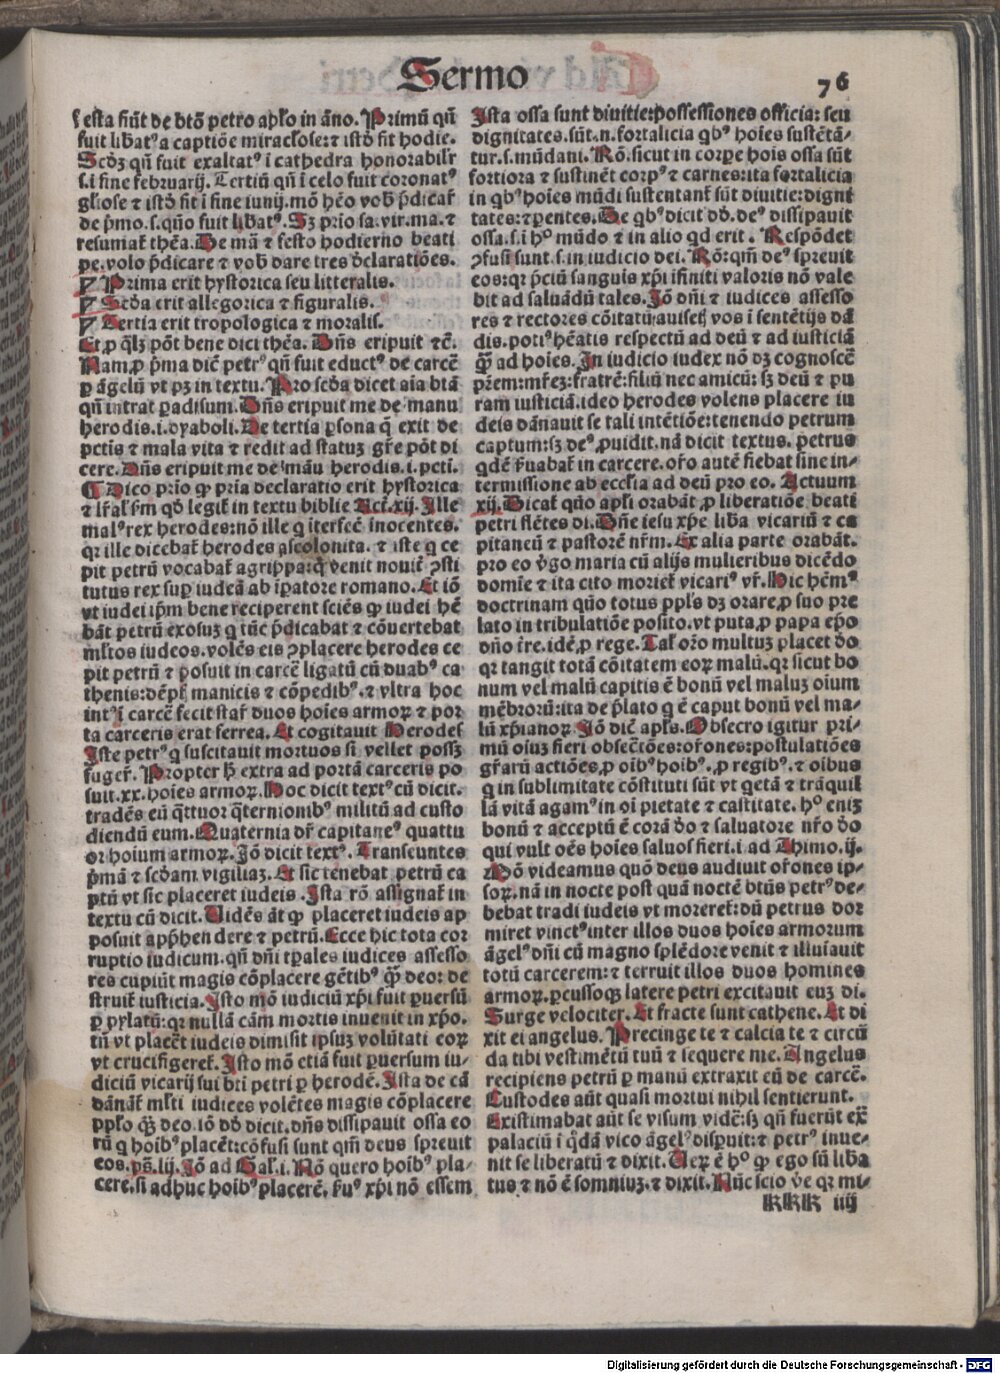 Sermo
76
festa fiũt de btõ petro aplo in ãno. Primũ qñ
fuit libatꝰ a captiõe miraclose: ⁊ istð fit hodie.
Scðʒ qñ fuit exaltatꝰ ĩ cathedra honorabilr
s. i fine februarij. Tertiũ qñ ĩ celo fuit coronatꝰ
gliose ⁊ istð fit ĩ fine iunij. mõ hẽo vob p̃dicaƭ
de p̃mo. s. qũo fuit libatꝰ. Sʒ prio sa. vir. ma. ⁊
resumaƭ thẽa. De mã ⁊ festo hodierno beati
pe. volo p̃dicare ⁊ vob dare tres ðclaratiões.
Prima erit hystorica seu litteralis.
Scða erit allegorica ⁊ figuralis.
Tertia erit tropologica ⁊ moralis.
Et ꝓ qlʒ põt bene dici thẽa. Dñs eripuit ⁊c̃.
Nam ꝓ p̃ma dic̃ petrꝰ qñ fuit eductꝰ de carcẽ
ꝑ ãgelũ vt pʒ in textu. Pro scða dicet aĩa btã
qñ intrat ꝑadisum. Dñs eripuit me de manu
herodis. i. dyaboli. De tertia ꝑsona q̃ exit de
pctĩs ⁊ mala vita ⁊ redit ad statuʒ gr̃e põt di
cere. Dñs eripuit me de mãu herodis. i. pcti.
¶ Dico prio ꝙ pria declaratio erit hystorica
⁊ lr̃alˀ ẜm qð legiƭ in textu biblie Act. xij. Ille
malꝰ rex herodes: nõ ille q ĩterfec̃ ĩnocentes.
qꝛ ille dicebaƭ herodes ascolonita. ⁊ iste q ce
pit petrũ vocabaƭ agrippa: q̃ venit nouiƭ ꝯsti
tutus rex suꝑ iudeã ab ĩꝑatore romano. Et iõ
vt iudei ip̃m bene reciperent sciẽs ꝙ iudei hẽ
bãt petrũ exosuʒ q tũc p̃dicabat ⁊ cõuertebat
mĩtos iudeos. volẽs eis ꝯplacere herodes ce
pit petrũ ⁊ posuit in carcẽ ligatũ cũ duabꝰ ca
thenis: dẽpĩ manicis ⁊ cõpedibꝰ. ⁊ vltra hoc
intˀ ĩ carcẽ fecit staƭ duos hoĩes armoꝝ ⁊ por
ta carceris erat ferrea. Et cogitauit Herodes
Iste petrꝰ q suscitauit mortuos si vellet possʒ
fugeƭ. Propter h̃ extra ad portã carceris po
suit. xx. hoĩes armoꝝ. Hoc dicit textꝰ cũ dicit.
tradẽs eũ q̃ttuor q̃ternionibꝰ militũ ad custo
diendũ eum. Quaternia dr̃ capitaneꝰ quattu
or hoium armoꝝ. Jõ dicit textꝰ. Transeuntes
p̃mã ⁊ scðam vigiliaʒ. Et sic tenebat petrũ ca
ptũ vt sic placeret iudeis. Ista rõ assignaƭ in
textu cũ dicit. Uidẽs ãt ꝙ placeret iudeis ap
posuit app̃hen dere ⁊ petrũ. Ecce hic tota cor
ruptio iudicum. qñ dñi tꝑales iudices assesso
res cupiũt magis cõplacere gẽtibꝰ q̃ȝ deo: de
struiƭ iusticia. Isto mõ iudiciũ xp̃i fuit ꝑuersũ
ꝑ pylatũ: qꝛ nullã cãm mortis inuenit in xp̃o.
tñ vt placẽt iudeis dimisit ipsuʒ volũtati eoꝝ
vt crucifigereƭ. Isto mõ etiã fuit ꝑuersum iu-
diciũ vicarij sui bti petri ꝑ herodẽ. Ista de cã
dãnãƭ mĩti iudices volẽtes magis cõplacere
pplo q̃ȝ deo. iõ dð dicit. dñs dissipauit ossa eo
rũ q hoibꝰ placẽt: cõfusi sunt qm̃ deus spreuit
eos. ps̃. lij. Jõ ad Gaƭ. i. Nõ quero hoibꝰ pla-
cere. si adhuc hoibꝰ placerẽ. ẜuꝰ xp̃i nõ essem
Ista ossa sunt diuitie: possessiones officia: seu
dignitates. sũt. n. fortalicia qbꝰ hoĩes sustẽtã-
tur. s. mũdani. Rõ. sicut in corpe hoĩs ossa sũt
fortiora ⁊ sustinẽt corpꝰ ⁊ carnes: ita fortalicia
in qbꝰ hoĩes mũdi sustentanƭ sũt diuitie: digni
tates: ⁊ ꝑentes. De qbꝰ dicit dð. deꝰ dissipauit
ossa. s. i hꝰ mũdo ⁊ in alio qd erit. Respõdet
ꝯfusi sunt. s. in iudicio dei. Rõ: qm̃ deꝰ spreuit
eos: qꝛ p̃ciũ sanguis xp̃i ĩfiniti valoris nõ vale
bit ad saluãdũ tales. Jõ dñi ⁊ iudices assesso
res ⁊ rectores cõitatũ auiseƭ vos ĩ sentẽtijs dã
dis. potiꝰ hẽatis respectũ ad deũ ⁊ ad iusticiã
q̃ȝ ad hoĩes. In iudicio iudex nõ dʒ cognoscẽ
pr̃em: mr̃eʒ: fratrẽ: filiũ nec amicũ: sʒ deũ ⁊ pu
ram iusticiã. ideo herodes volens placere iu
deis dãnauit se tali intẽtiõe: tenendo petrum
captum: sʒ deꝰ ꝓuidit. nã dicit textus. petrus
qdẽ ẜuabaƭ in carcere. or̃o autẽ fiebat sine in-
termissione ab ecclĩa ad deũ pro eo. Actuum
xij. Dicaƭ qũo apl̃i orabãt ꝓ liberatiõe beati
petri flẽtes di. Dñe iesu xp̃e liba vicariũ ⁊ ca
pitaneũ ⁊ pastorẽ nr̃m. Ex alia parte orabãt.
pro eo ṽgo maria cũ alijs mulieribus dicẽdo
domĩe ⁊ ita cito morieƭ vicariꝰ vr̃. Hic hẽmꝰ
doctrinam qũo totus ppls dʒ orare ꝓ suo pre
lato in tribulatiõe posito. vt puta ꝓ papa ep̃o
dño ƭre. idẽ ꝓ rege. Talˀ or̃o multuʒ placet ðo
qꝛ tangit totã cõitatem eoꝝ malũ. qꝛ sicut bo
num vel malũ capitis ẽ bonũ vel maluʒ oĩum
mẽbrorũ: ita de p̃lato q ẽ caput bonũ vel ma-
lũ xp̃ianoꝝ. Jõ dic̃ apls. Obsecro igitur pri-
mũ oĩuʒ fieri obsec̃ões: or̃ones: postulatiões
gr̃arũ actiões ꝓ oĩbꝰ hoibꝰ. ꝓ regibꝰ. ⁊ oĩbus
q in sublimitate cõstituti sũt vt q̃etã ⁊ trãquil
lã vitã agamꝰ in oĩ pietate ⁊ castitate. hꝰ eniʒ
bonũ ⁊ acceptũ ẽ corã ðo ⁊ saluatore nr̃o ðo
qui vult oẽs hoĩes saluos fieri. i ad Thimo. ij.
Mõ videamus quõ deus audiuit or̃ones ip-
soꝝ. nã in nocte post quã noctẽ btũs petrꝰ de-
bebat tradi iudeis vt morereƭ: dũ petrus dor
miret vinctꝰ inter illos duos hoĩes armorum
ãgelꝰ dñi cũ magno splẽdore venit ⁊ illuĩauit
totũ carcerem: ⁊ terruit illos duos homines
armoꝝ. ꝑcussoqʒ latere petri excitauit euʒ di.
Surge velociter. Et fracte sunt cathene. Et di
xit ei angelus. Precinge te ⁊ calcia te ⁊ circũ
da tibi vestimẽtũ tuũ ⁊ sequere me. Angelus
recipiens petrũ ꝑ manũ extraxit eũ de carcẽ.
Custodes aũt quasi mortui nihil sentierunt.
Existimabat aũt se visum videƭ: sʒ qñ fuerũt ex̃
palaciũ ĩ q̃dã vico ãgelꝰ disꝑuit: ⁊ petrꝰ inue-
nit se liberatũ ⁊ dixit. Ueꝝ ẽ hꝰ ꝙ ego sũ liba
tus ⁊ nõ ẽ somniuʒ. ⁊ dixit. Nũc scio ṽe qꝛ mi-
KKK iiij
Digitalisierung gefördert durch die Deutsche Forschungsgemeinschaft - DFG